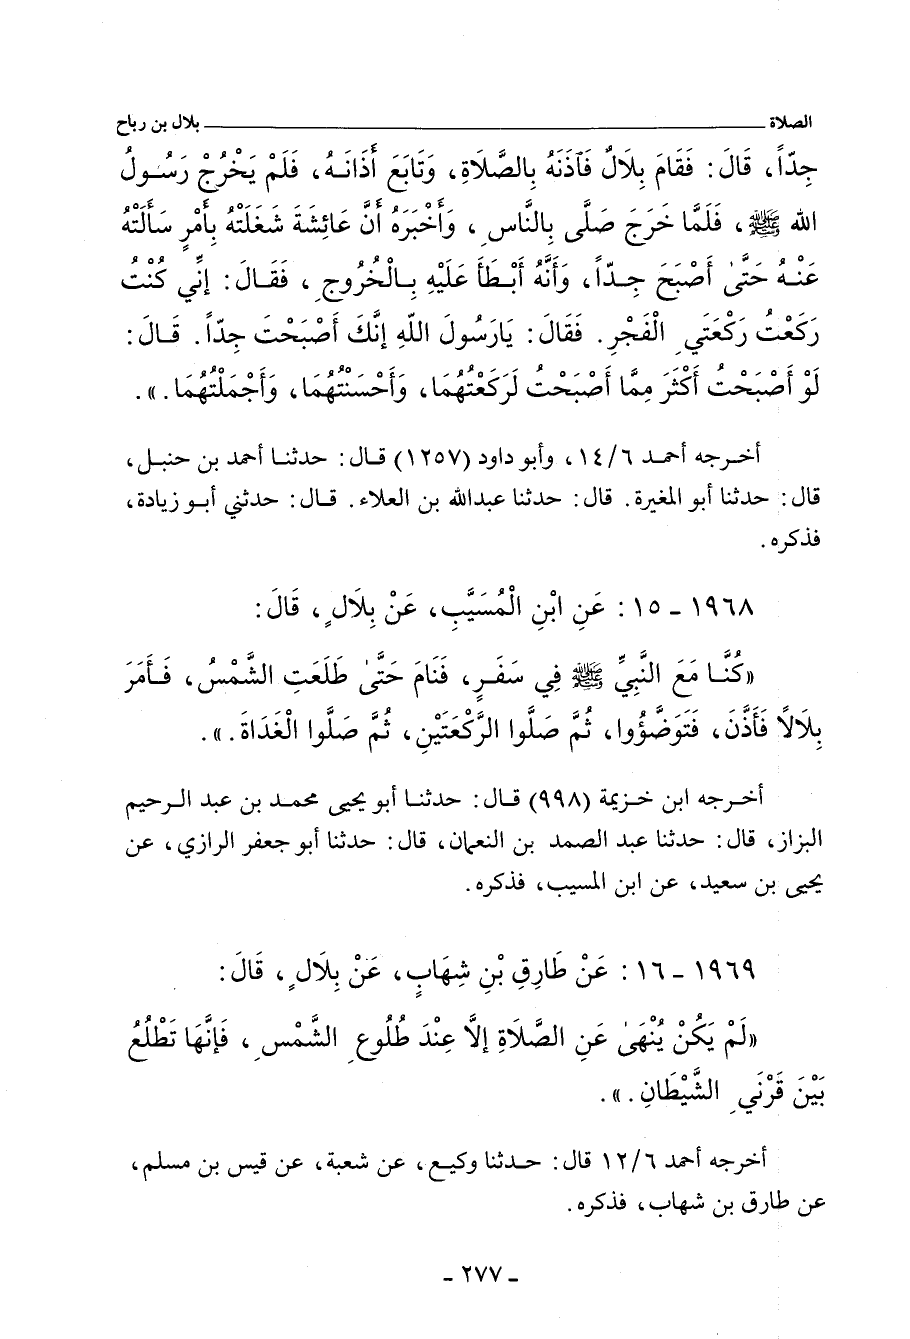 الصلاة ـــــــــــــــــــــــــــــــــــــــــ بلال بن رباح
جِدّاً، قَالَ: فَقَامَ بِلَالٌ فَآذَنَهُ بِالصَّلَاةِ، وَتَابَعَ أَذَانَـهُ، فَلَمْ يَخْرُجْ رَسُـولُ
الله ﷺ، فَلَمَّا خَرَجَ صَلَّى بِالنَّاسِ، وَأَخْبَرَهُ أَنَّ عَائِشَةَ شَغَلَتْهُ بِأَمْرٍ سَأَلَتْهُ
عَنْـهُ حَتَّىٰ أَصْبَحَ جِـدّاً، وَأَنَّهُ أَبْـطَأَ عَلَيْهِ بِـالْخُرُوجِ، فَقَـالَ: إِنِّي كُنْتُ
رَكَعْتُ رَكْعَتَيِ الْفَجْرِ. فَقَالَ: يَارَسُولَ اللهِ إِنَّكَ أَصْبَحْتَ جِدّاً. قَـالَ:
لَوْ أَصْبَحْتُ أَكْثَرَ مِمَّا أَصْبَحْتُ لَرَكَعْتُهُمَا، وَأَحْسَنْتُهُمَا، وَأَجْمَلْتُهُمَا.».
أخـرجه أحمـد ١٤/٦، وأبو داود (١٢٥٧) قـال: حدثنـا أحمد بن حنبـل،
قال: حدثنا أبو المغيرة. قال: حدثنا عبدالله بن العلاء. قـال: حدثني أبـو زيادة،
فذكره.
١٩٦٨ ـ ١٥: عَنِ ابْنِ الْمُسَيَّبِ، عَنْ بِلَالٍ، قَالَ:
«كُنَّـا مَعَ النَّبِيِّ ﷺ فِي سَفَـرٍ، فَنَامَ حَتَّىٰ طَلَعَتِ الشَّمْسُ، فَـأَمَرَ
بِلَالاً فَأَذَّنَ، فَتَوَضَّؤُوا، ثُمَّ صَلَّوا الرَّكْعَتَيْنِ، ثُمَّ صَلَّوا الْغَدَاةَ.».
أخـرجه ابن خـزيمة (٩٩٨) قـال: حدثنـا أبو يحيى محمـد بن عبد الـرحيم
البزاز، قال: حدثنا عبد الصمد بن النعمان، قال: حدثنا أبو جعفر الرازي، عن
يحيى بن سعيد، عن ابن المسيب، فذكره.
١٩٦٩ ـ ١٦: عَنْ طَارِقِ بْنِ شِهَابٍ، عَنْ بِلَالٍ، قَالَ:
«لَمْ يَكُنْ يُنْهَىٰ عَنِ الصَّلَاةِ إِلَّا عِنْدَ طُلُوعِ الشَّمْسِ، فَإِنَّهَا تَطْلُعُ
بَيْنَ قَرْنَيِ الشَّيْطَانِ.».
أخرجه أحمد ١٢/٦ قال: حـدثنا وكيـع، عن شعبة، عن قيس بن مسلم،
عن طارق بن شهاب، فذكره.
ـ ٢٧٧ ـ